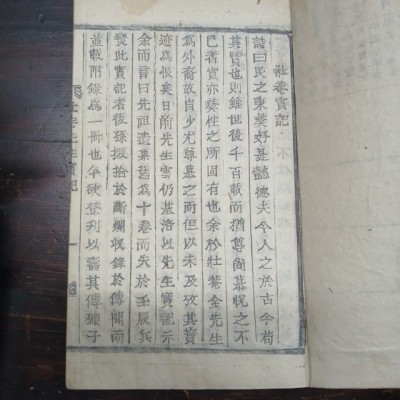 壯菴實記
詩曰民之秉彝好是懿德夫今人之於古今苟
其賢也則雖世後千百載而猶尊尙慕悅之不
已者實亦彝性之所固有也余於壯菴金先生
爲外裔故自少尤尊而但以未及攷其實
迹爲恨矣日前先生雲仍基洛以先生實記示
余而言曰先祖遺集舊爲十卷而失於壬辰兵
燹此實記者後孫掇拾於斷爛收錄於傳聞而
並載附錄爲一冊也今欲登刊以壽其傳願子